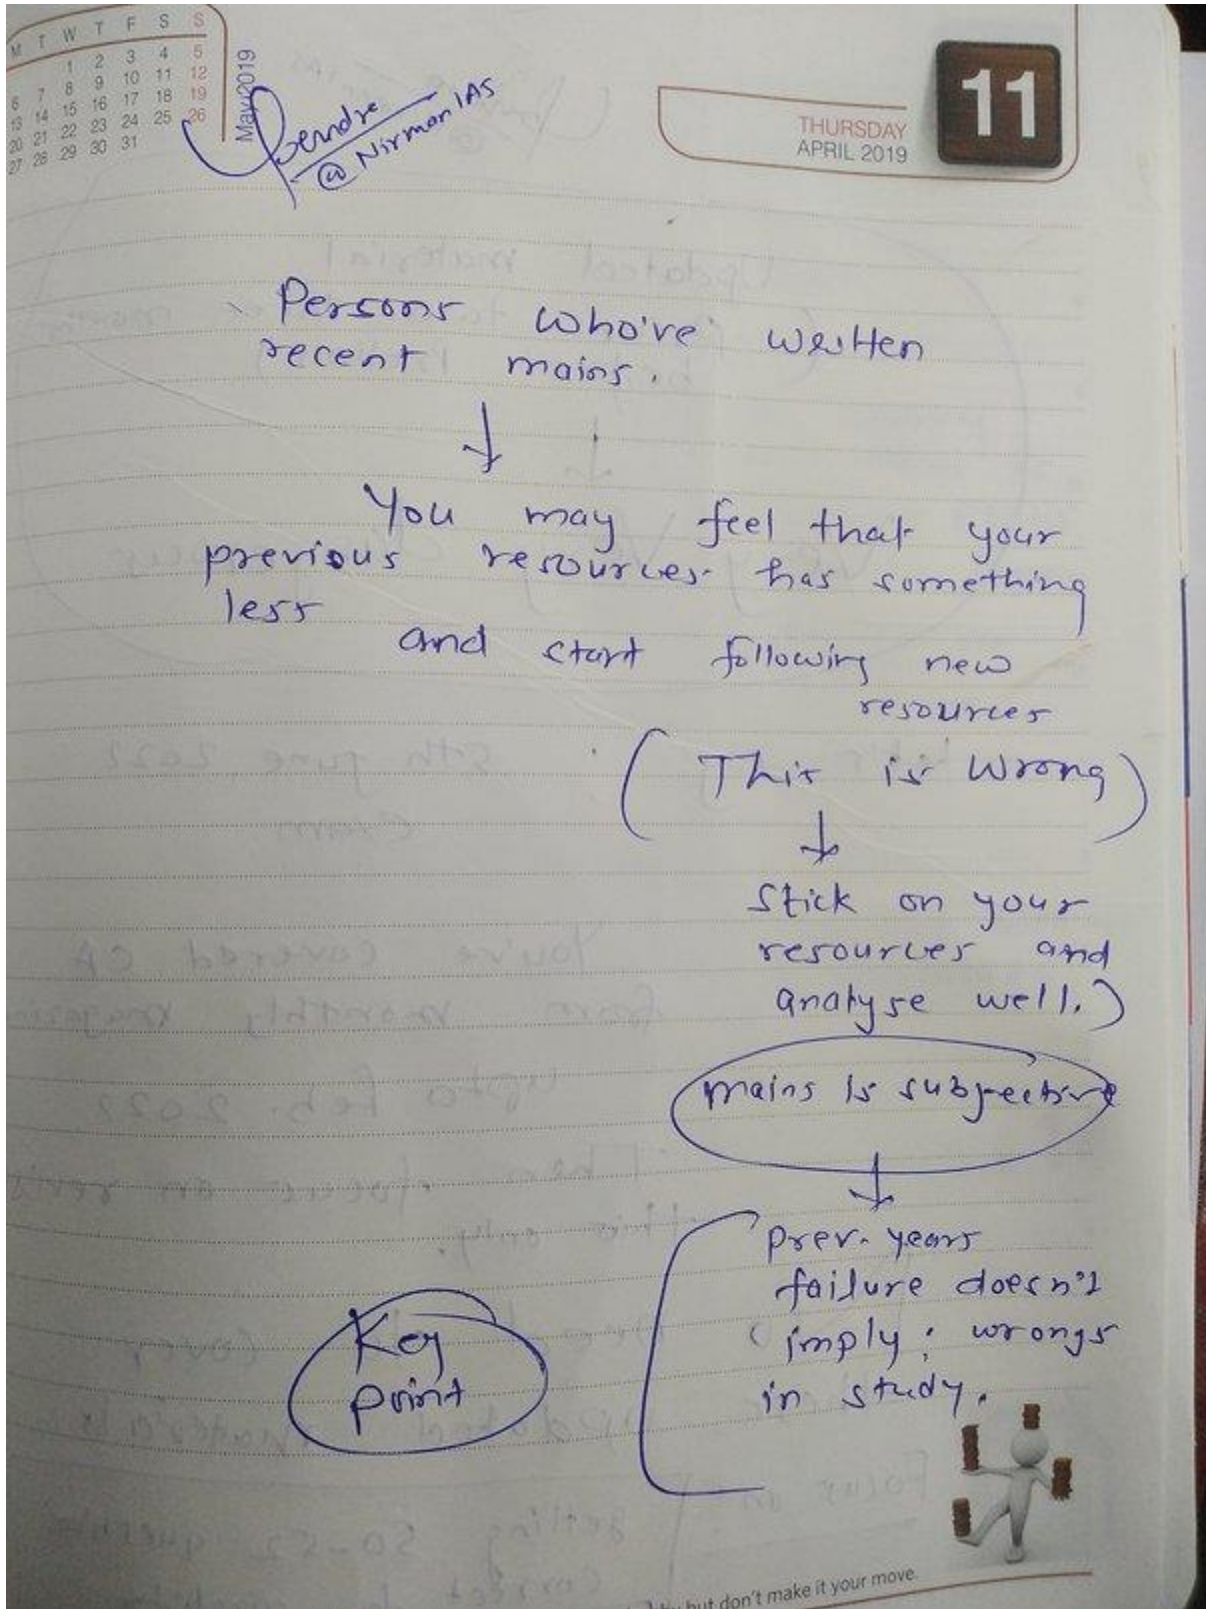 M T W T F S S
1 2 3 4 5
6 7 8 9 10 11 12
13 14 15 16 17 18 19
20 21 22 23 24 25 26
27 28 29 30 31
May 2019
@ Nirman IAS
THURSDAY
APRIL 2019
11
Persons who've written
recent mains.
You may feel that your
previous resources has something
less
and start following new
resources
(This is wrong)
Stick on your
resources and
analyse well.)
mains is subjective
prev. years
failure doesn't
imply; wrongs
in study.
Key
point
but don't make it your move.